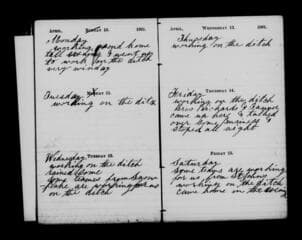 April, Sunday 11. 1901.
Monday
working round home
till we went
to work on the ditch
very windy
Monday 11.
Tuesday
working on the ditch
Tuesday 12.
Wednesday
working on the ditch
rained some
some teams from Snow
flake are working for us
on the ditch
April, Wednesday 13. 1901.
Thursday
working on the ditch
Thursday 14.
Friday
working on the ditch
Bros Richards &
came up here & talked
over some business &
stoped all night
Friday 15.
Saturday
Some teams are working
for us from St Johns
working on the ditch
came home in the evening